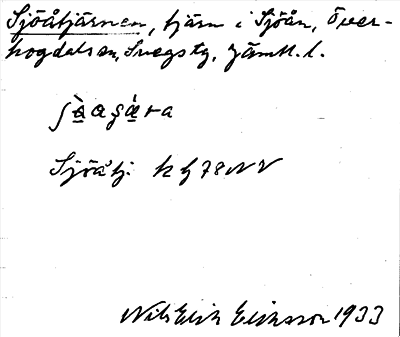 Sjöåtjärnen, tjärn i Sjöån, Över-
hogdal sn, Svegs tg, Jämtl. l.
Sjöåtj. k bl 78 NV
Nils Erik Eliasson 1933